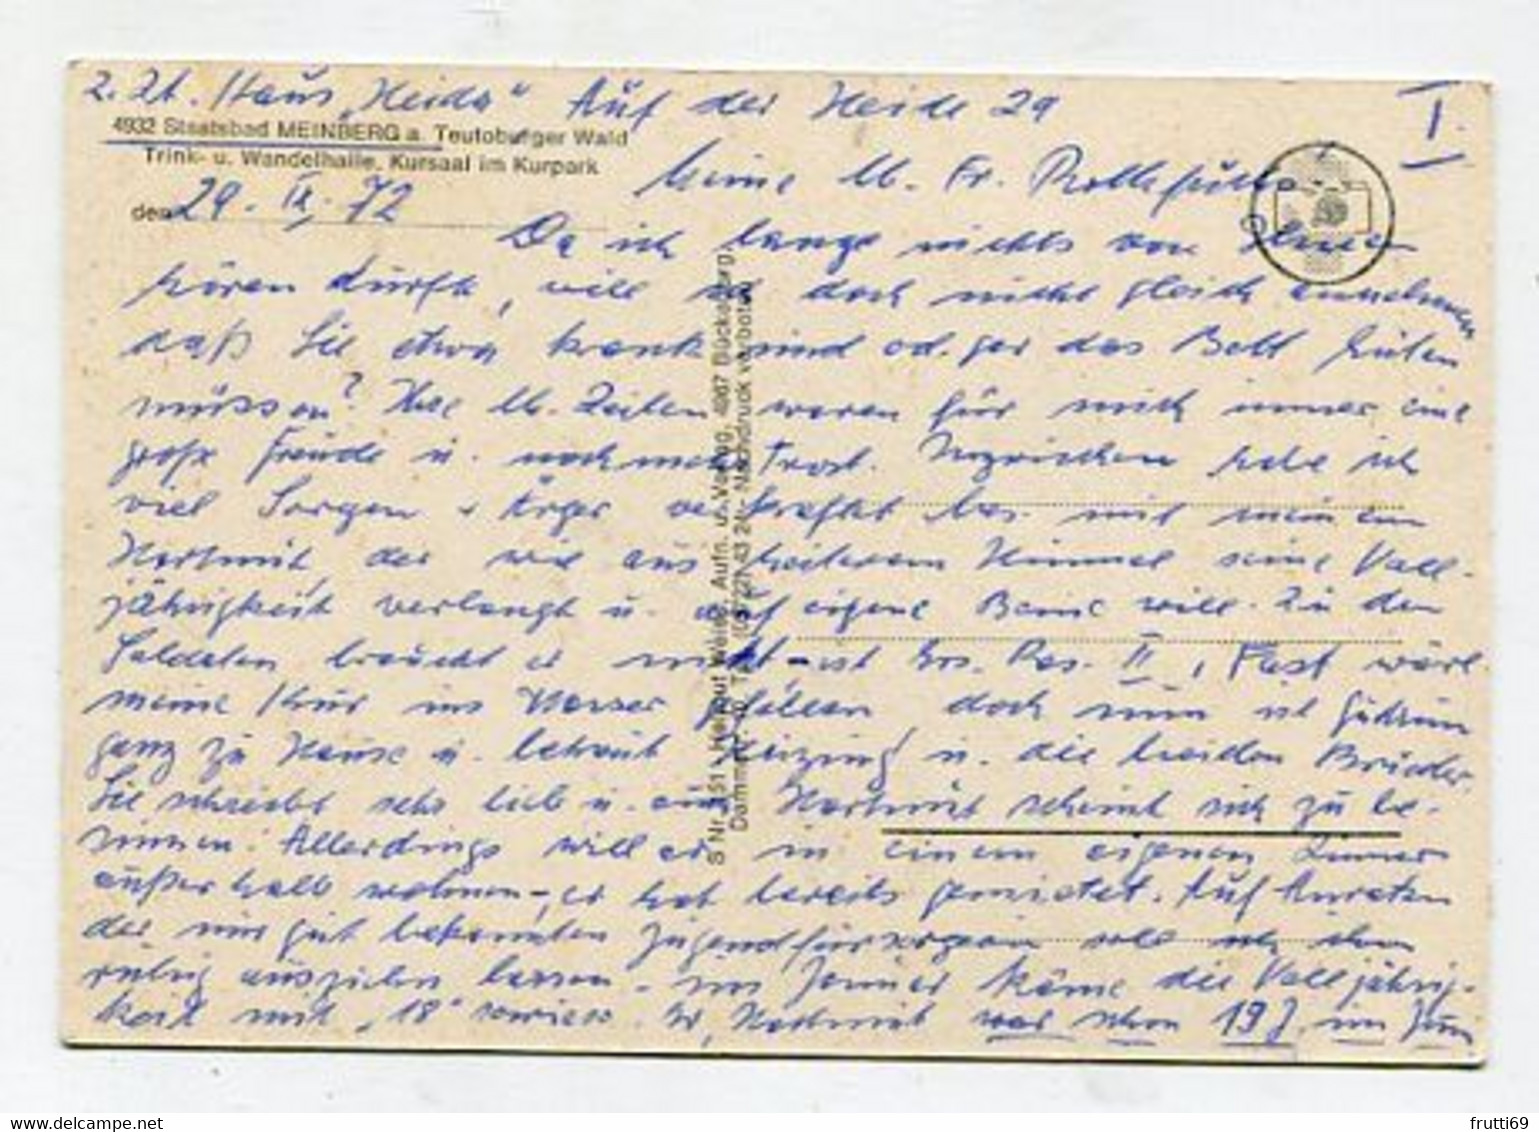 z. Zt. Haus „Heida" Auf der Heide 29
I.
4932 Staatsbad MEINBERG a. Teutoburger Wald
Trink- u. Wandelhalle, Kursaal im Kurpark
den 29. IX. 72
Meine lb. Fr.
Da ich lange nichts von Ihnen
hören durfte, will ich doch nicht gleich annehmen
daß Sie etwa krank sind od. gar das Bett hüten
müssen? Ihre lb. Zeilen waren für mich immer eine
große Freude u. nochmehr Trost. Inzwischen habe ich
viel Sorgen + Ärger verkraftet bes. mit meinem
Hartmut, der wie aus heiterem Himmel seine Voll-
jährigkeit verlangt u. auf eigene Beine will. Zu den
Soldaten braucht er nicht - ist Ers. Res. II, Fast wäre
meine Kur ins Wasser gefallen doch nun ist Gudrun
ganz zu Hause u. betreut Heizung u. die beiden Brüder.
Sie schreibt sehr lieb u. auch Hartmut scheint sich zu be-
sinnen. Allerdings will er in einem eigenen Zimmer
außerhalb wohnen -, er hat bereits gemietet. Auf Anraten
der mir gut bekannten Jugendfürsorgerin soll ich ihn
ruhig ausziehen lassen - im Januar käme die Volljährig-
keit mit „18" sowieso. Hartmut war schon 19 J. im Juni
S Nr. 151 Helmut Weise, Aufn. u. Verlag, 4967 Bückeburg,
Nachdruck verboten
frutti69